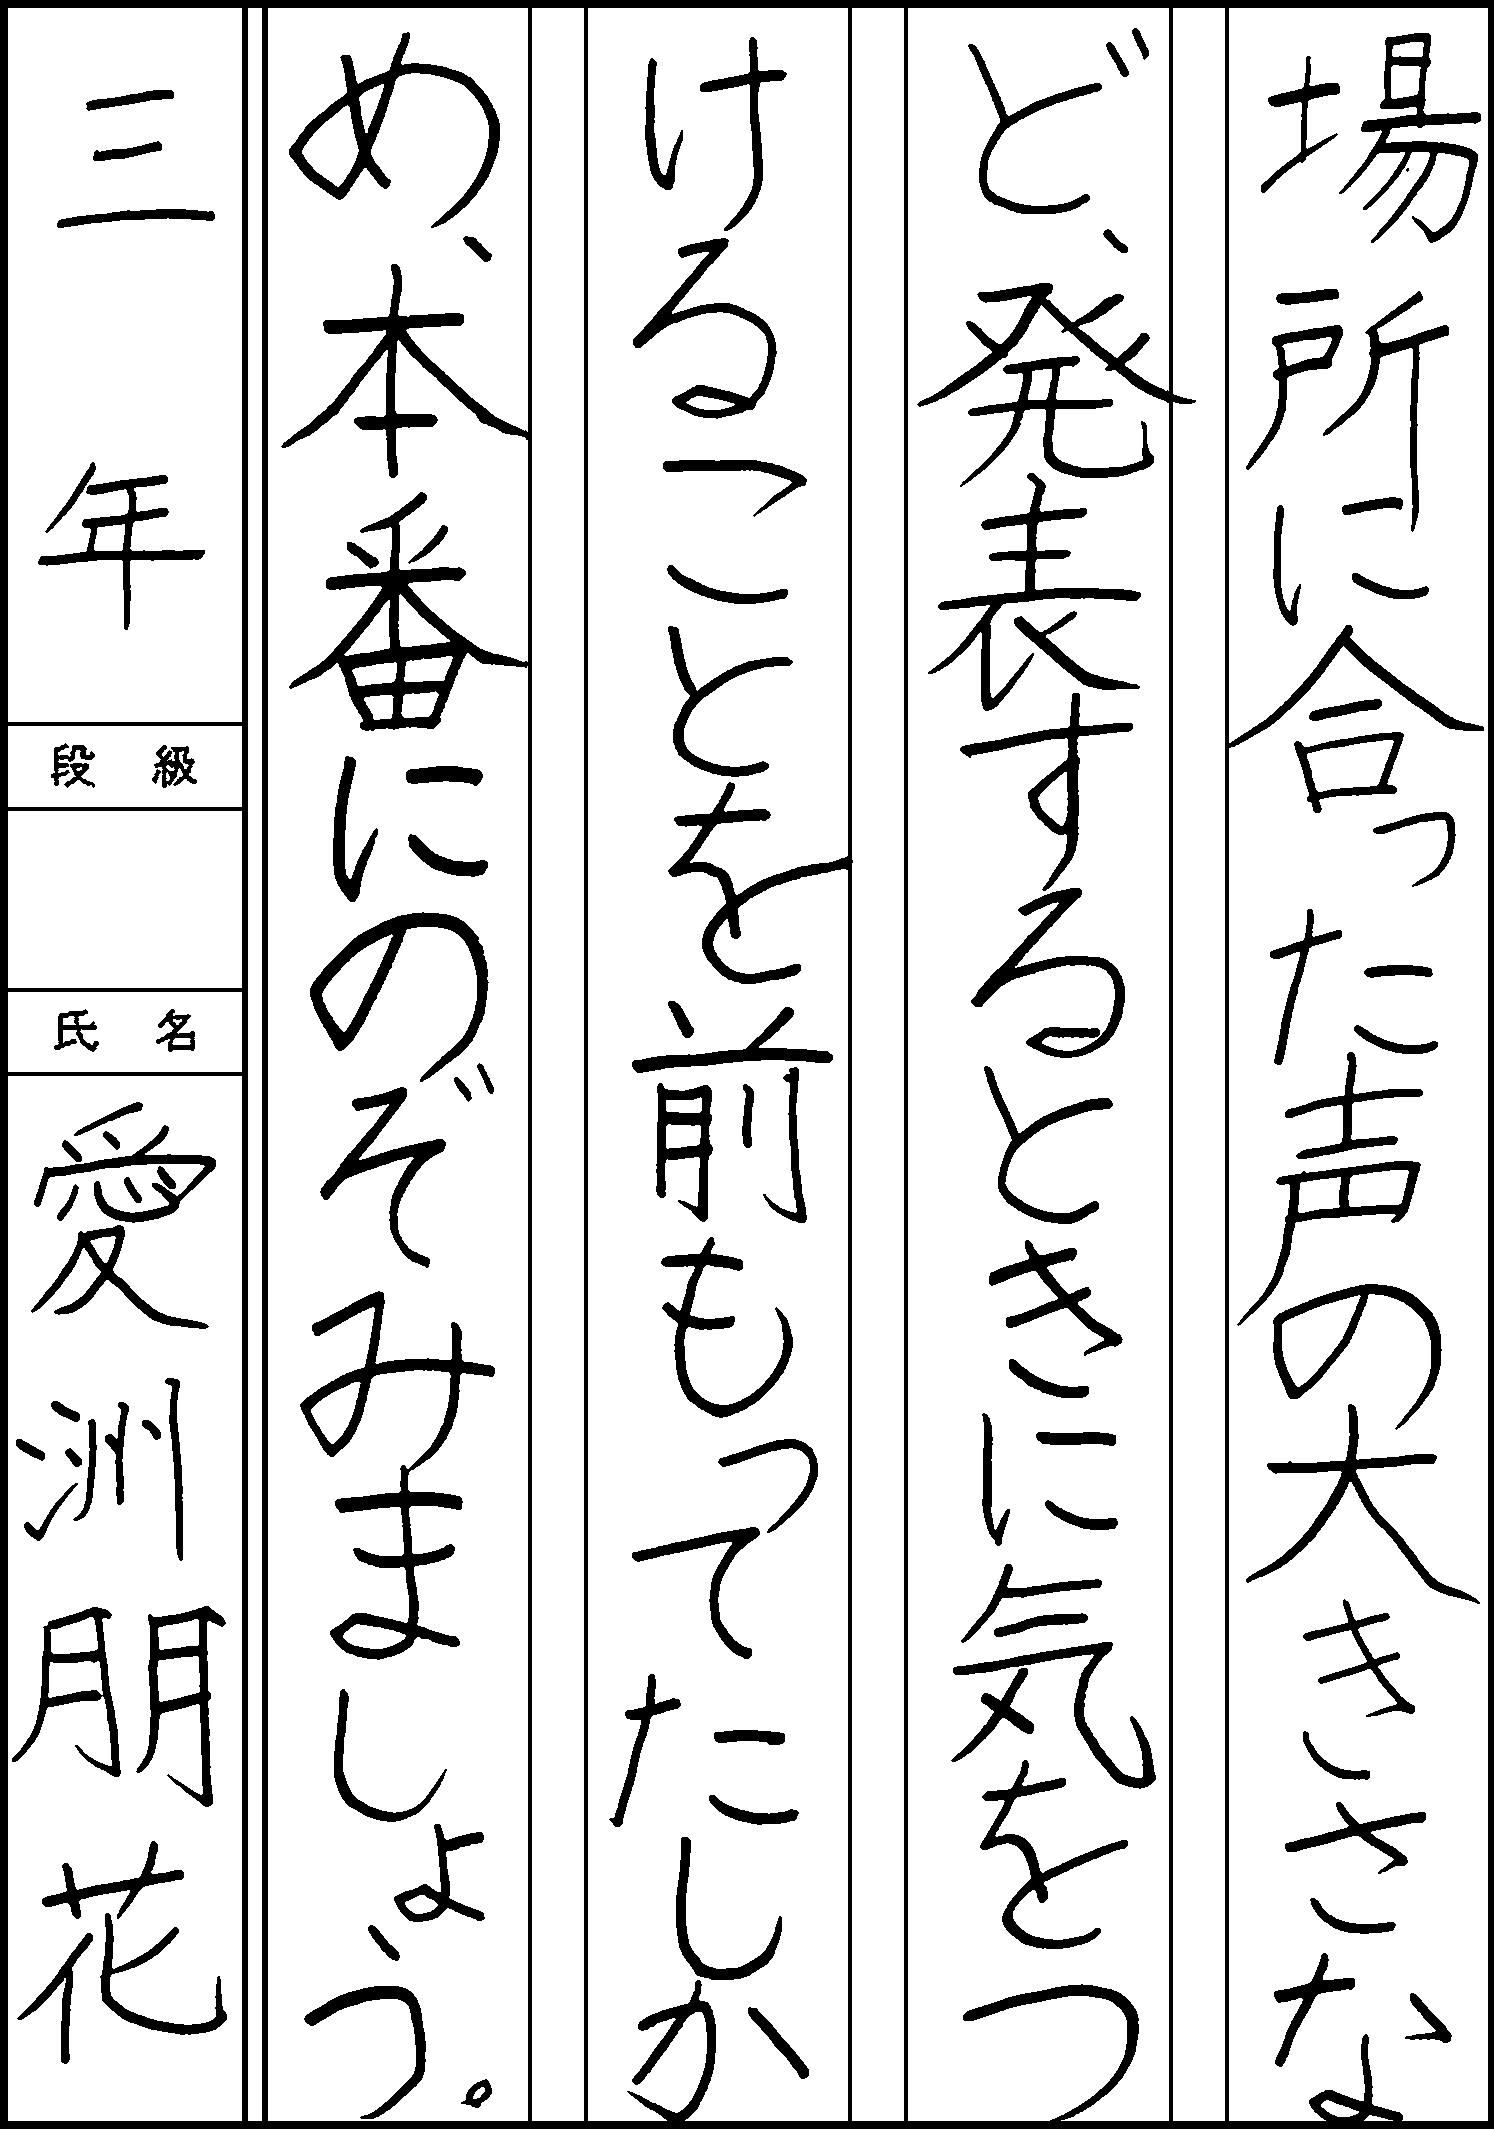 場所に合った声の大きさな
ど、発表するときに気をつ
けることを前もってたしか
め、本番にのぞみましょう。
三年
段級
氏名
愛洲朋花